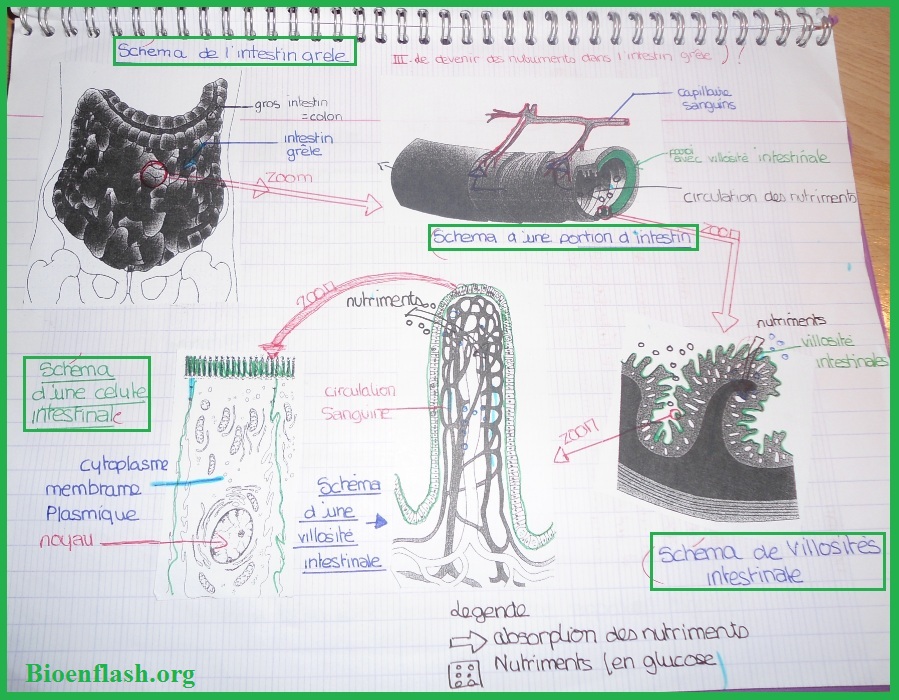 Schéma de l'intestin grêle
III. de devenir des nutriments dans l'intestin grêle
gros intestin
= colon
intestin
grêle
zoom
capillaire
sanguins
avec villosité intestinale
circulation des nutriments
Schema d'une portion d'intestin
zoom
zoom
nutriments
nutriments
villosité
intestinales
Schéma
d'une celute
intestinale
circulation
Sanguine
zoom
cytoplasme
membrame
Plasmique
noyau
Schéma
d'une
villosité
intestinale
Schéma de Villosités
intestinale
legende
absorption des nutriments
Nutriments (en glucose)
Bioenflash.org